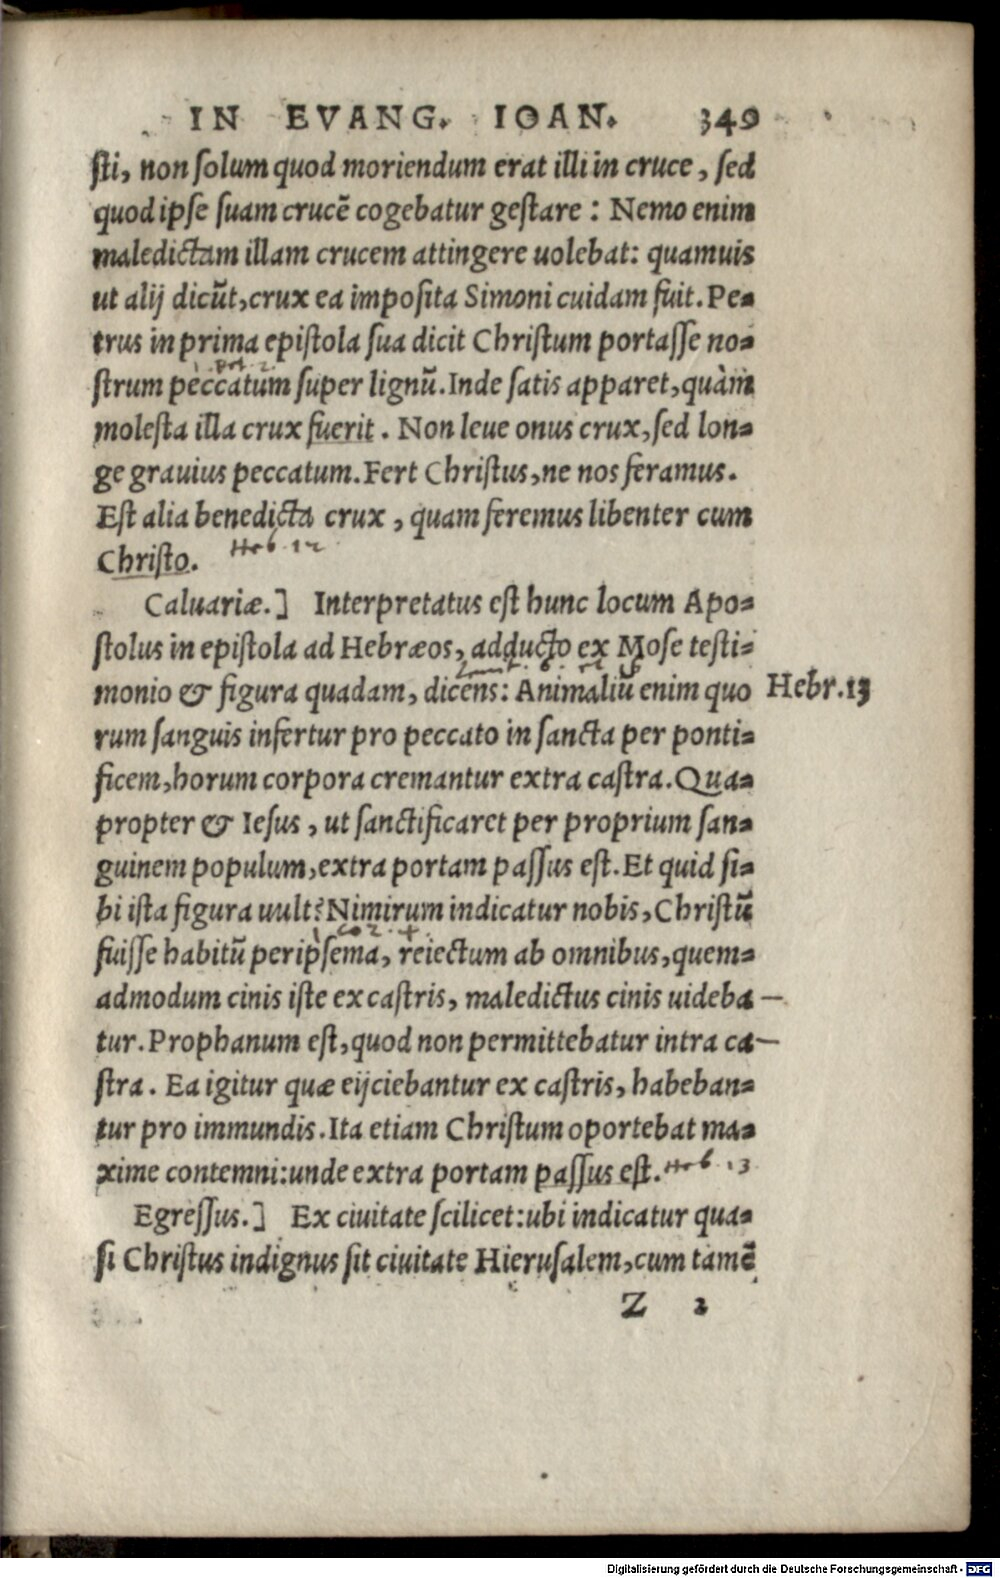 IN EVANG. IOAN. 349
sti, non solum quod moriendum erat illi in cruce, sed
quod ipse suam crucē cogebatur gestare: Nemo enim
maledictam illam crucem attingere uolebat: quamuis
ut alij dicūt, crux ea imposita Simoni cuidam fuit. Pe-
trus in prima epistola sua dicit Christum portasse no-
strum peccatum super lignū. Inde satis apparet, quàm
molesta illa crux fuerit. Non leue onus crux, sed lon-
ge grauius peccatum. Fert Christus, ne nos feramus.
Est alia benedicta crux, quam feremus libenter cum
Christo. Heb. 12
Caluariæ.] Interpretatus est hunc locum Apo-
stolus in epistola ad Hebræos, adducto ex Mose testi-
monio & figura quadam, dicens: Animaliū enim quo Hebr. 13
rum sanguis infertur pro peccato in sancta per ponti-
ficem, horum corpora cremantur extra castra. Qua-
propter & Iesus, ut sanctificaret per proprium san-
guinem populum, extra portam passus est. Et quid si-
bi ista figura uult? Nimirum indicatur nobis, Christū
1 Cor. 4.
fuisse habitū peripsema, reiectum ab omnibus, quem-
admodum cinis iste ex castris, maledictus cinis uideba
tur. Prophanum est, quod non permittebatur intra ca
stra. Ea igitur quæ eijciebantur ex castris, habeban-
tur pro immundis. Ita etiam Christum oportebat ma-
xime contemni: unde extra portam passus est. Heb. 13
Egressus.] Ex ciuitate scilicet: ubi indicatur qua-
si Christus indignus sit ciuitate Hierusalem, cum tamē
Z 2
Digitalisierung gefördert durch die Deutsche Forschungsgemeinschaft - DFG